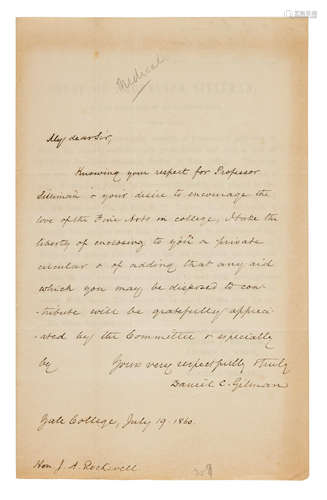 Medical
My dear Sir,
Knowing your respect for Professor
Silliman & your desire to encourage the
love of the Fine Arts in college, I take the
liberty of enclosing to you a private
circular & of adding that any aid
which you may be disposed to con-
-tribute will be gratefully apprec-
-iated by the Committee & especially
by Yours very respectfully & truly
Daniel C. Gilman
Yale College, July 19. 1860.
Hon J. A. Rockwell